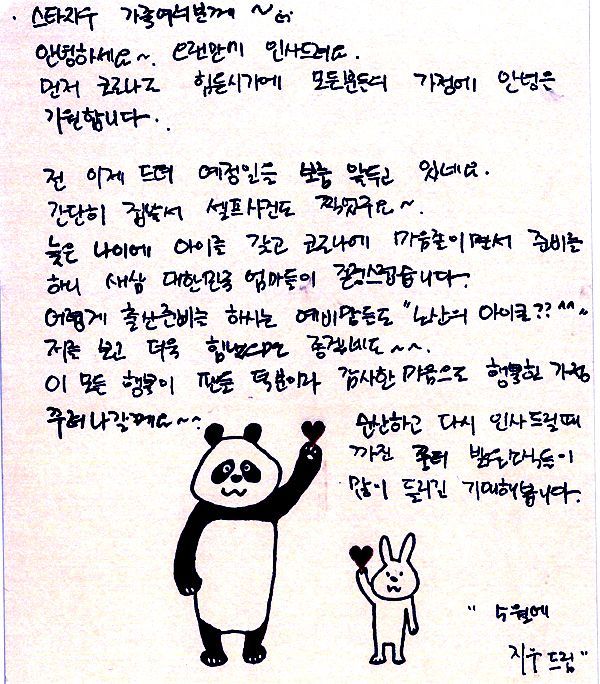 스타지우 가족여러분께 ~
안녕하세요~. 오랜만에 인사드려요.
먼저 코로나로 힘든시기에 모든분들의 가정에 안녕을
기원합니다.
전 이제 드뎌 예정일을 보름 앞두고 있네요.
간단히 집에서 셀프사진도 찍었구요~.
늦은 나이에 아이를 갖고 코로나에 마음졸이면서 준비를
하니 새삼 대한민국 엄마들이 존경스럽습니다.
어렵게 출산준비를 하시는 예비맘들도 "노산의 아이콘?? ^^~
저를 보고 더욱 힘내시면 좋겠네요~~.
이 모든 행복이 팬들 덕분이라 감사한 마음으로 행복한 가정
꾸려나갈께요~~
순산하고 다시 인사드릴때
까진 밝은소식들이
많이 들리길 기대해봅니다.
" 5월에
지우 드림"